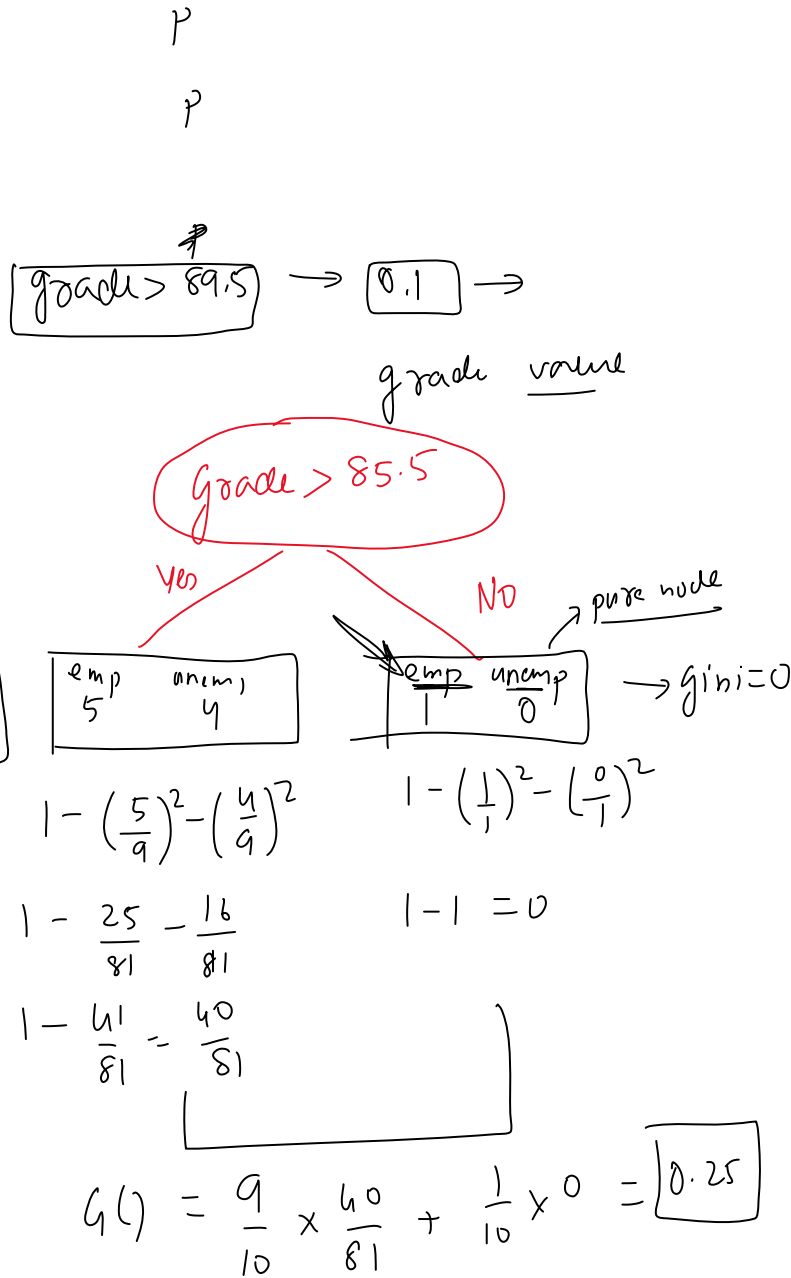 P
P
grade > 89.5 → 0.1 →
grade value
Grade > 85.5
Yes
NO
pure node
emp unemp
5 4
emp unemp
1 0
→ gini = 0
1 - (5/9)² - (4/9)²
1 - (1/1)² - (0/1)²
1 - 25/81 - 16/81
1 - 1 = 0
1 - 41/81 = 40/81
G() = 9/10 × 40/81 + 1/10 × 0 = 0.25